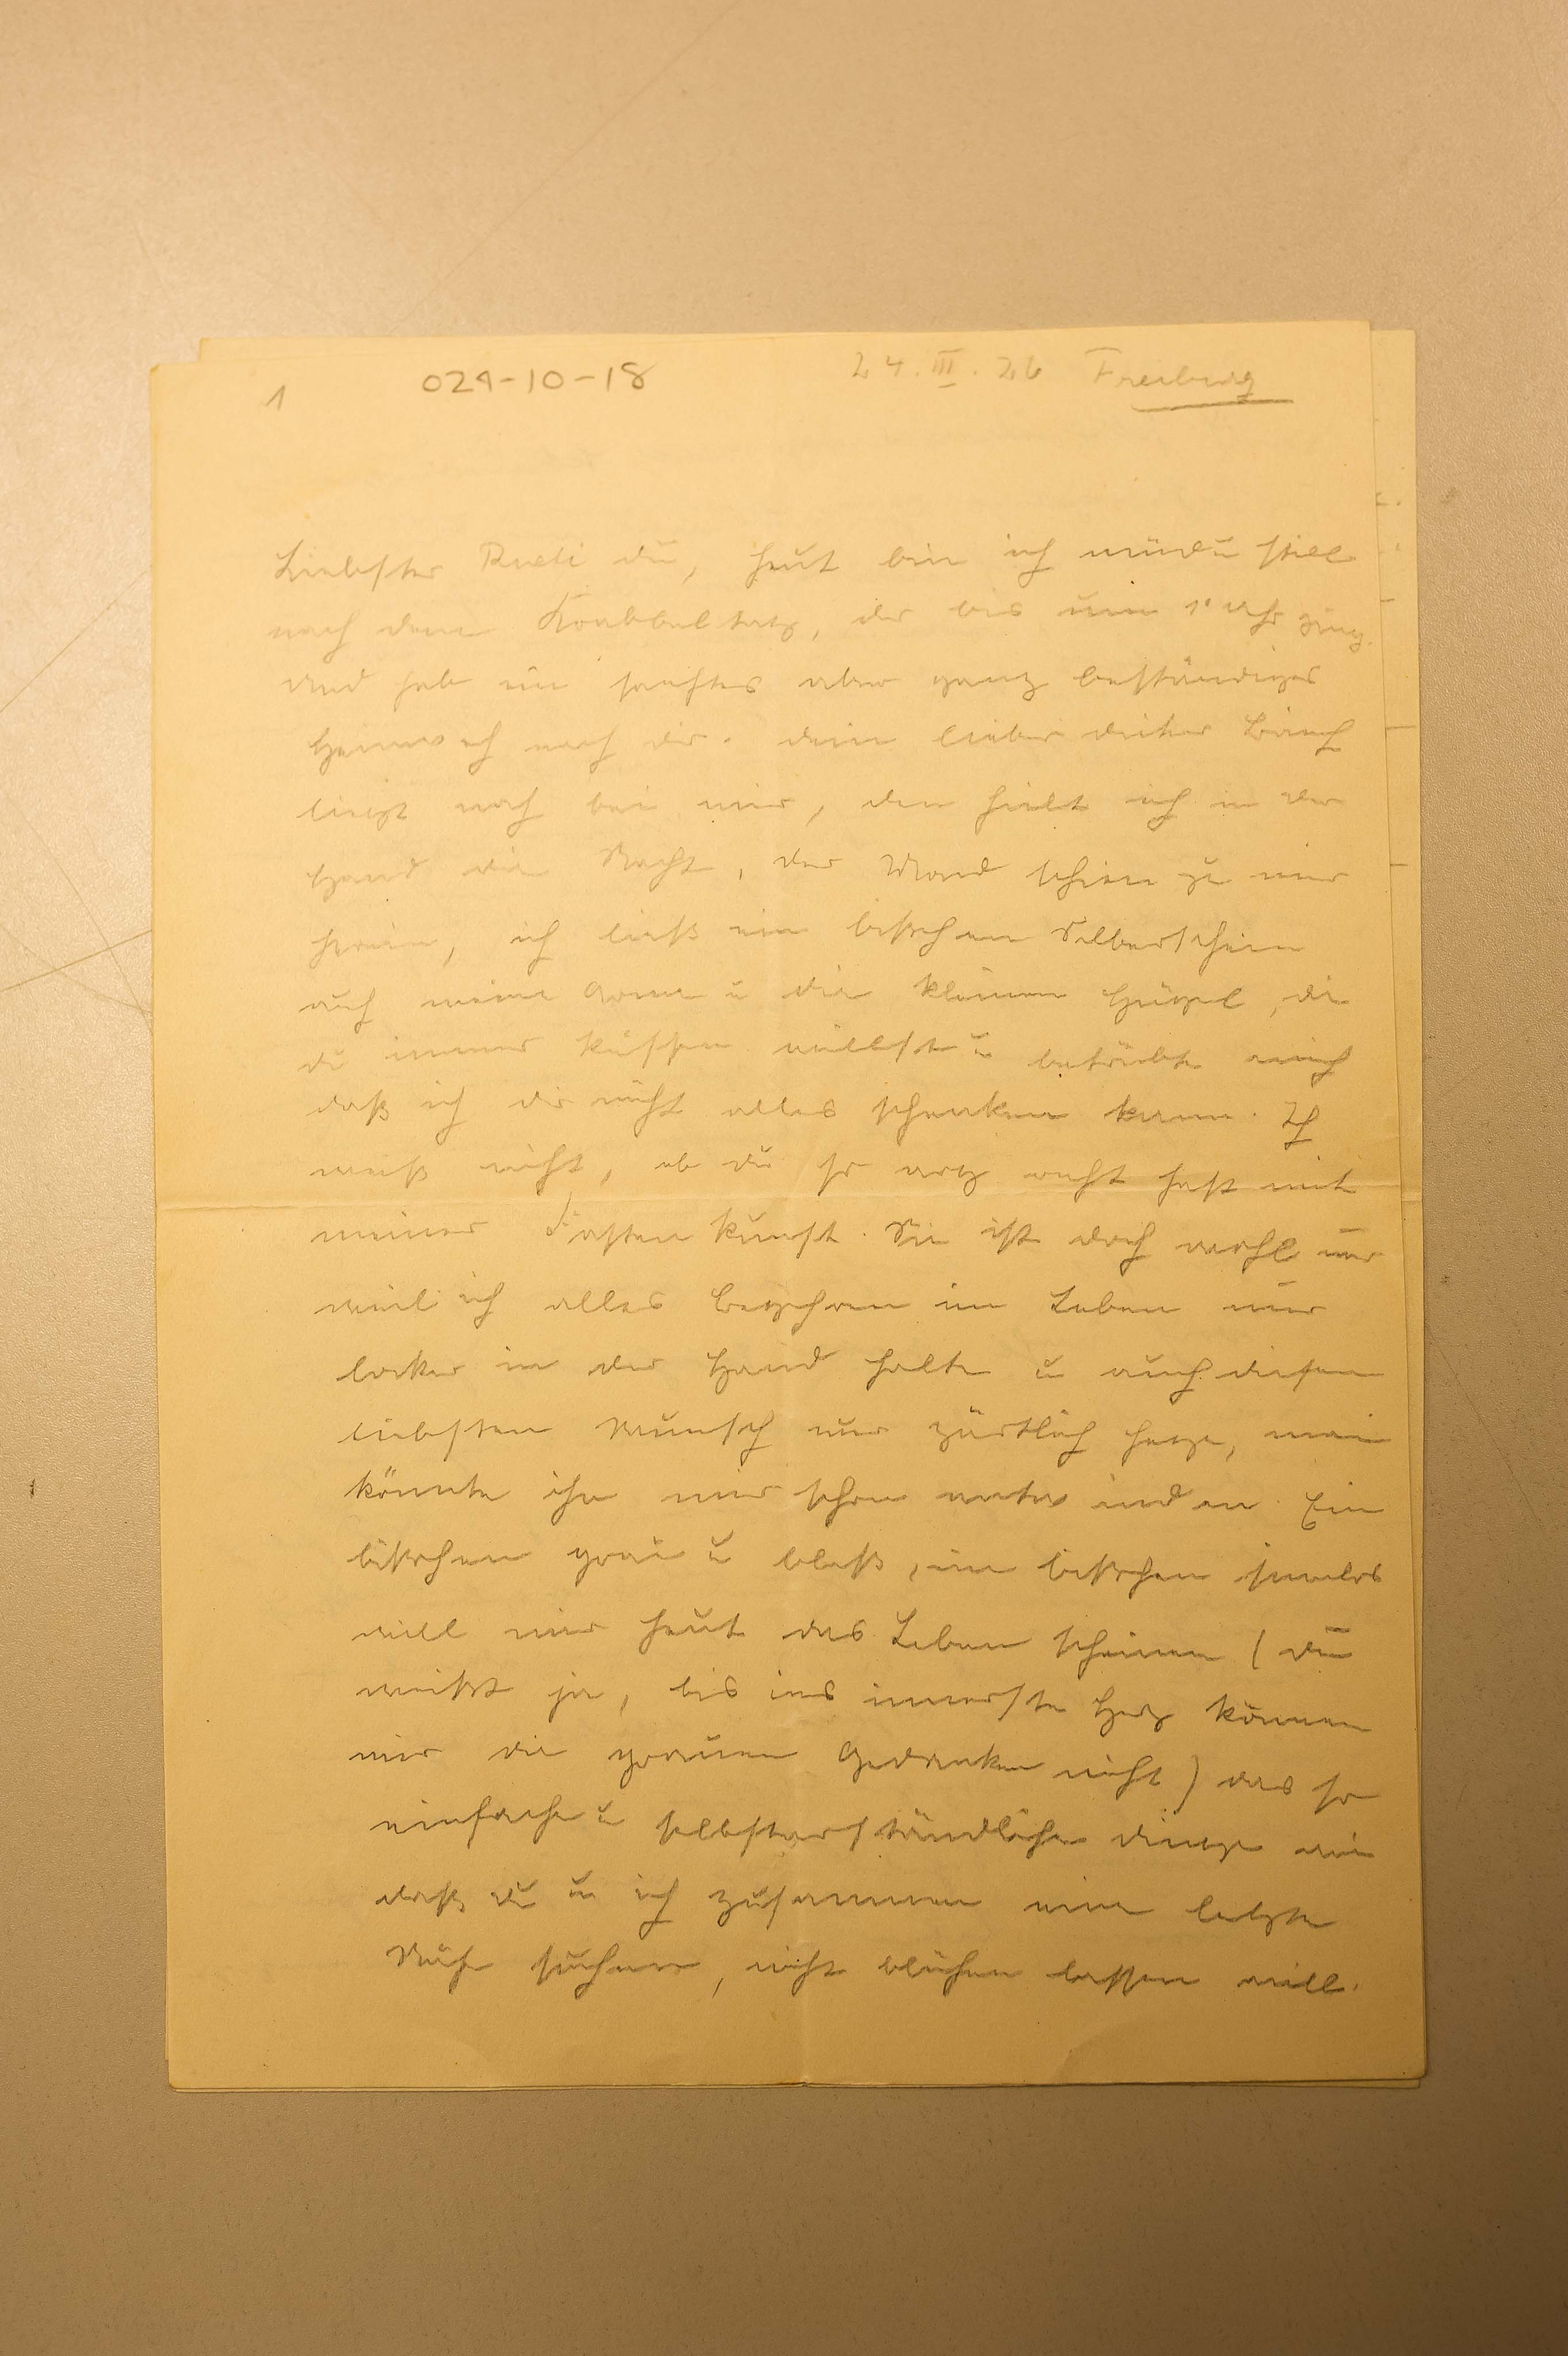 1 029-10-18 24.III.26 Freiburg
Liebster Rudi du, heut bin ich müd u still
nach dem Krabbeltag, der bis um 1° Uhr ging.
Und hab ein sanftes aber ganz beständiges
Heimweh nach dir. dein lieber dicker Brief
liegt noch bei mir, den hielt ich in der
Hand die Nacht, der Mond schien zu mir
herein, ich ließ ein bißchen Silberschein
auf meine Arme u die kleinen Hügel, die
du immer küssen willst u betrübte mich
daß ich dir nicht alles schenken kann. Ich
weiß nicht, ob du so arg recht hast mit
meiner Fastenkunst. Sie ist doch wohl nur
weil ich alles Begehren im Leben nur
locker in der Hand halte u auch diesen
liebsten Wunsch nur zärtlich hege, man
könnte ihn mir schon entwinden. Ein
bißchen grau u blaß, ein bißchen
will mir heut das Leben scheinen (du
weißt ja, bis ins innerste Herz können
mir die grauen Gedanken nicht) das so
einfache u selbstverständliche dinge wie
daß du u ich zusammen eine letzte
suchen, nicht blühen lassen will.